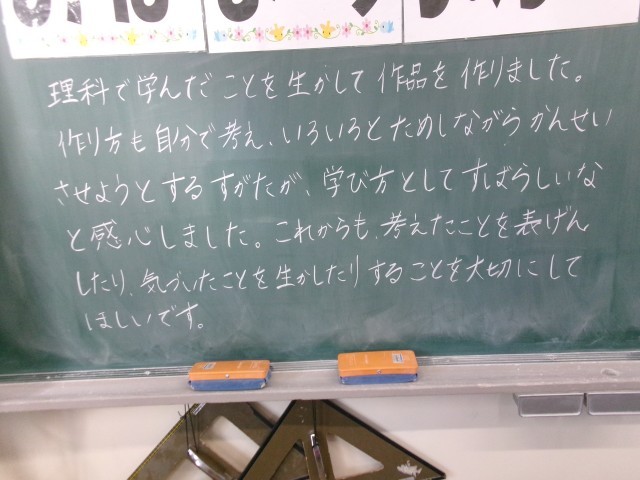 理科で学んだことを生かして作品を作りました。
作り方も自分で考え、いろいろとためしながらかんせい
させようとするすがたが、学び方としてすばらしいな
と感心しました。これからも、考えたことを表げん
したり、気づいたことを生かしたりすることを大切にして
ほしいです。